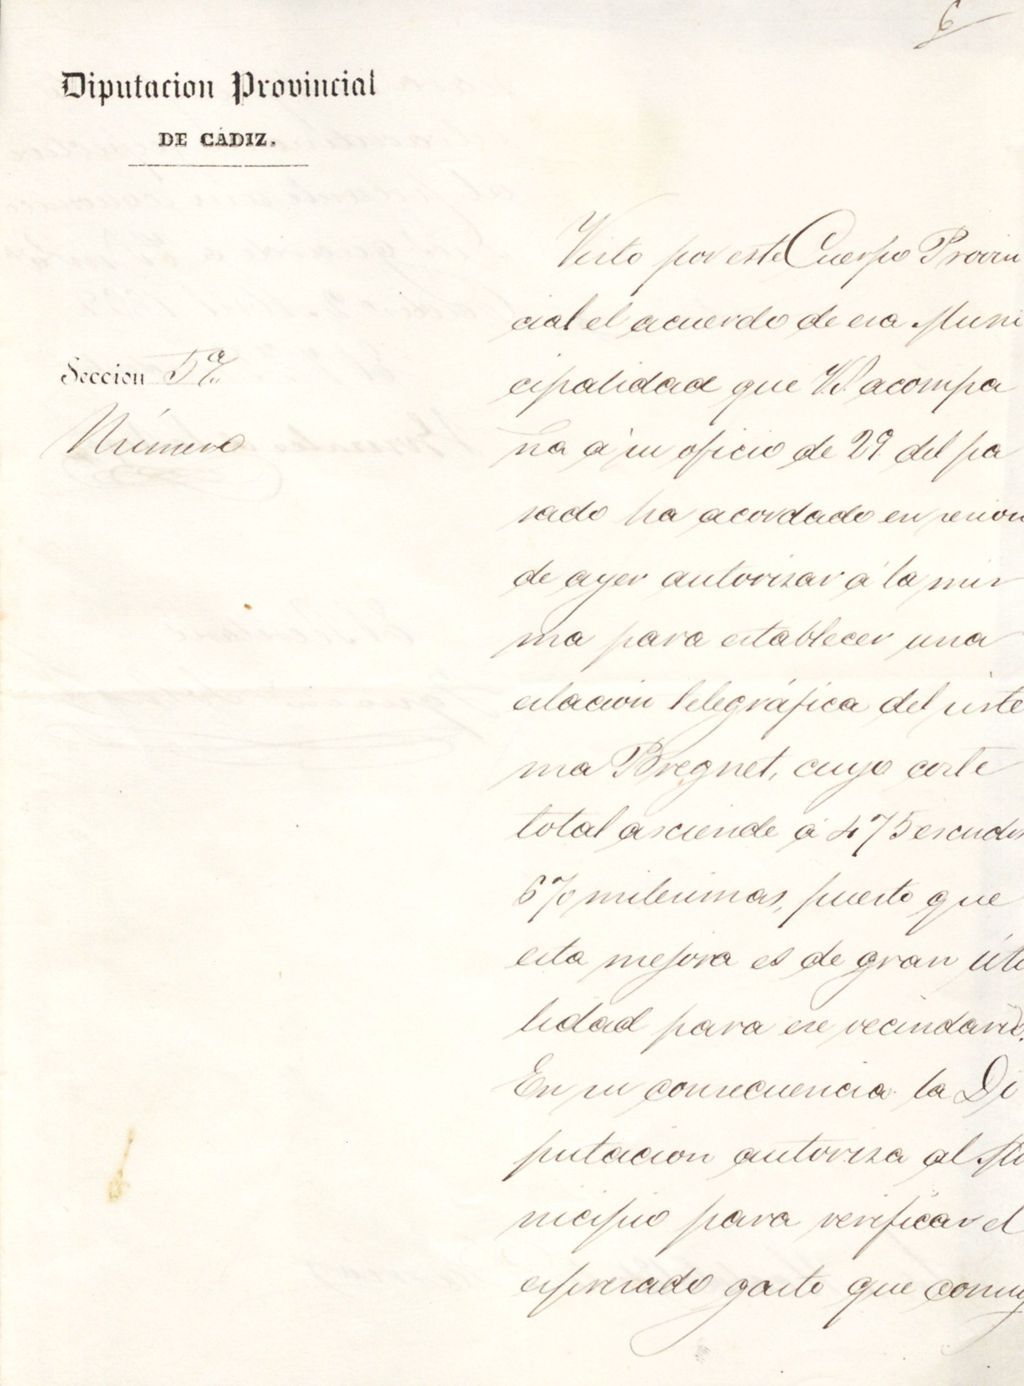 6
Diputacion Provincial
DE CÁDIZ.
Seccion 5ª
Número
Visto por este Cuerpo Provin
cial el acuerdo de esa Muni
cipalidad que V.S. acompa
ña á su oficio de 29 del pa
sado ha acordado en sesion
de ayer autorizar á la mis
ma para establecer una
estacion telegráfica del siste
ma Bregnet, cuyo coste
total asciende á 475 escudos
670 milesimas, puesto que
esta mejora es de gran úti
lidad para ese vecindario.
En su consecuencia la Di
putacion autoriza al Mu
nicipio para verificar el
espresado gasto que